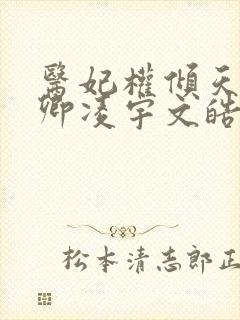 醫妃權傾天
卿凌宇文皓
松本清志郎正